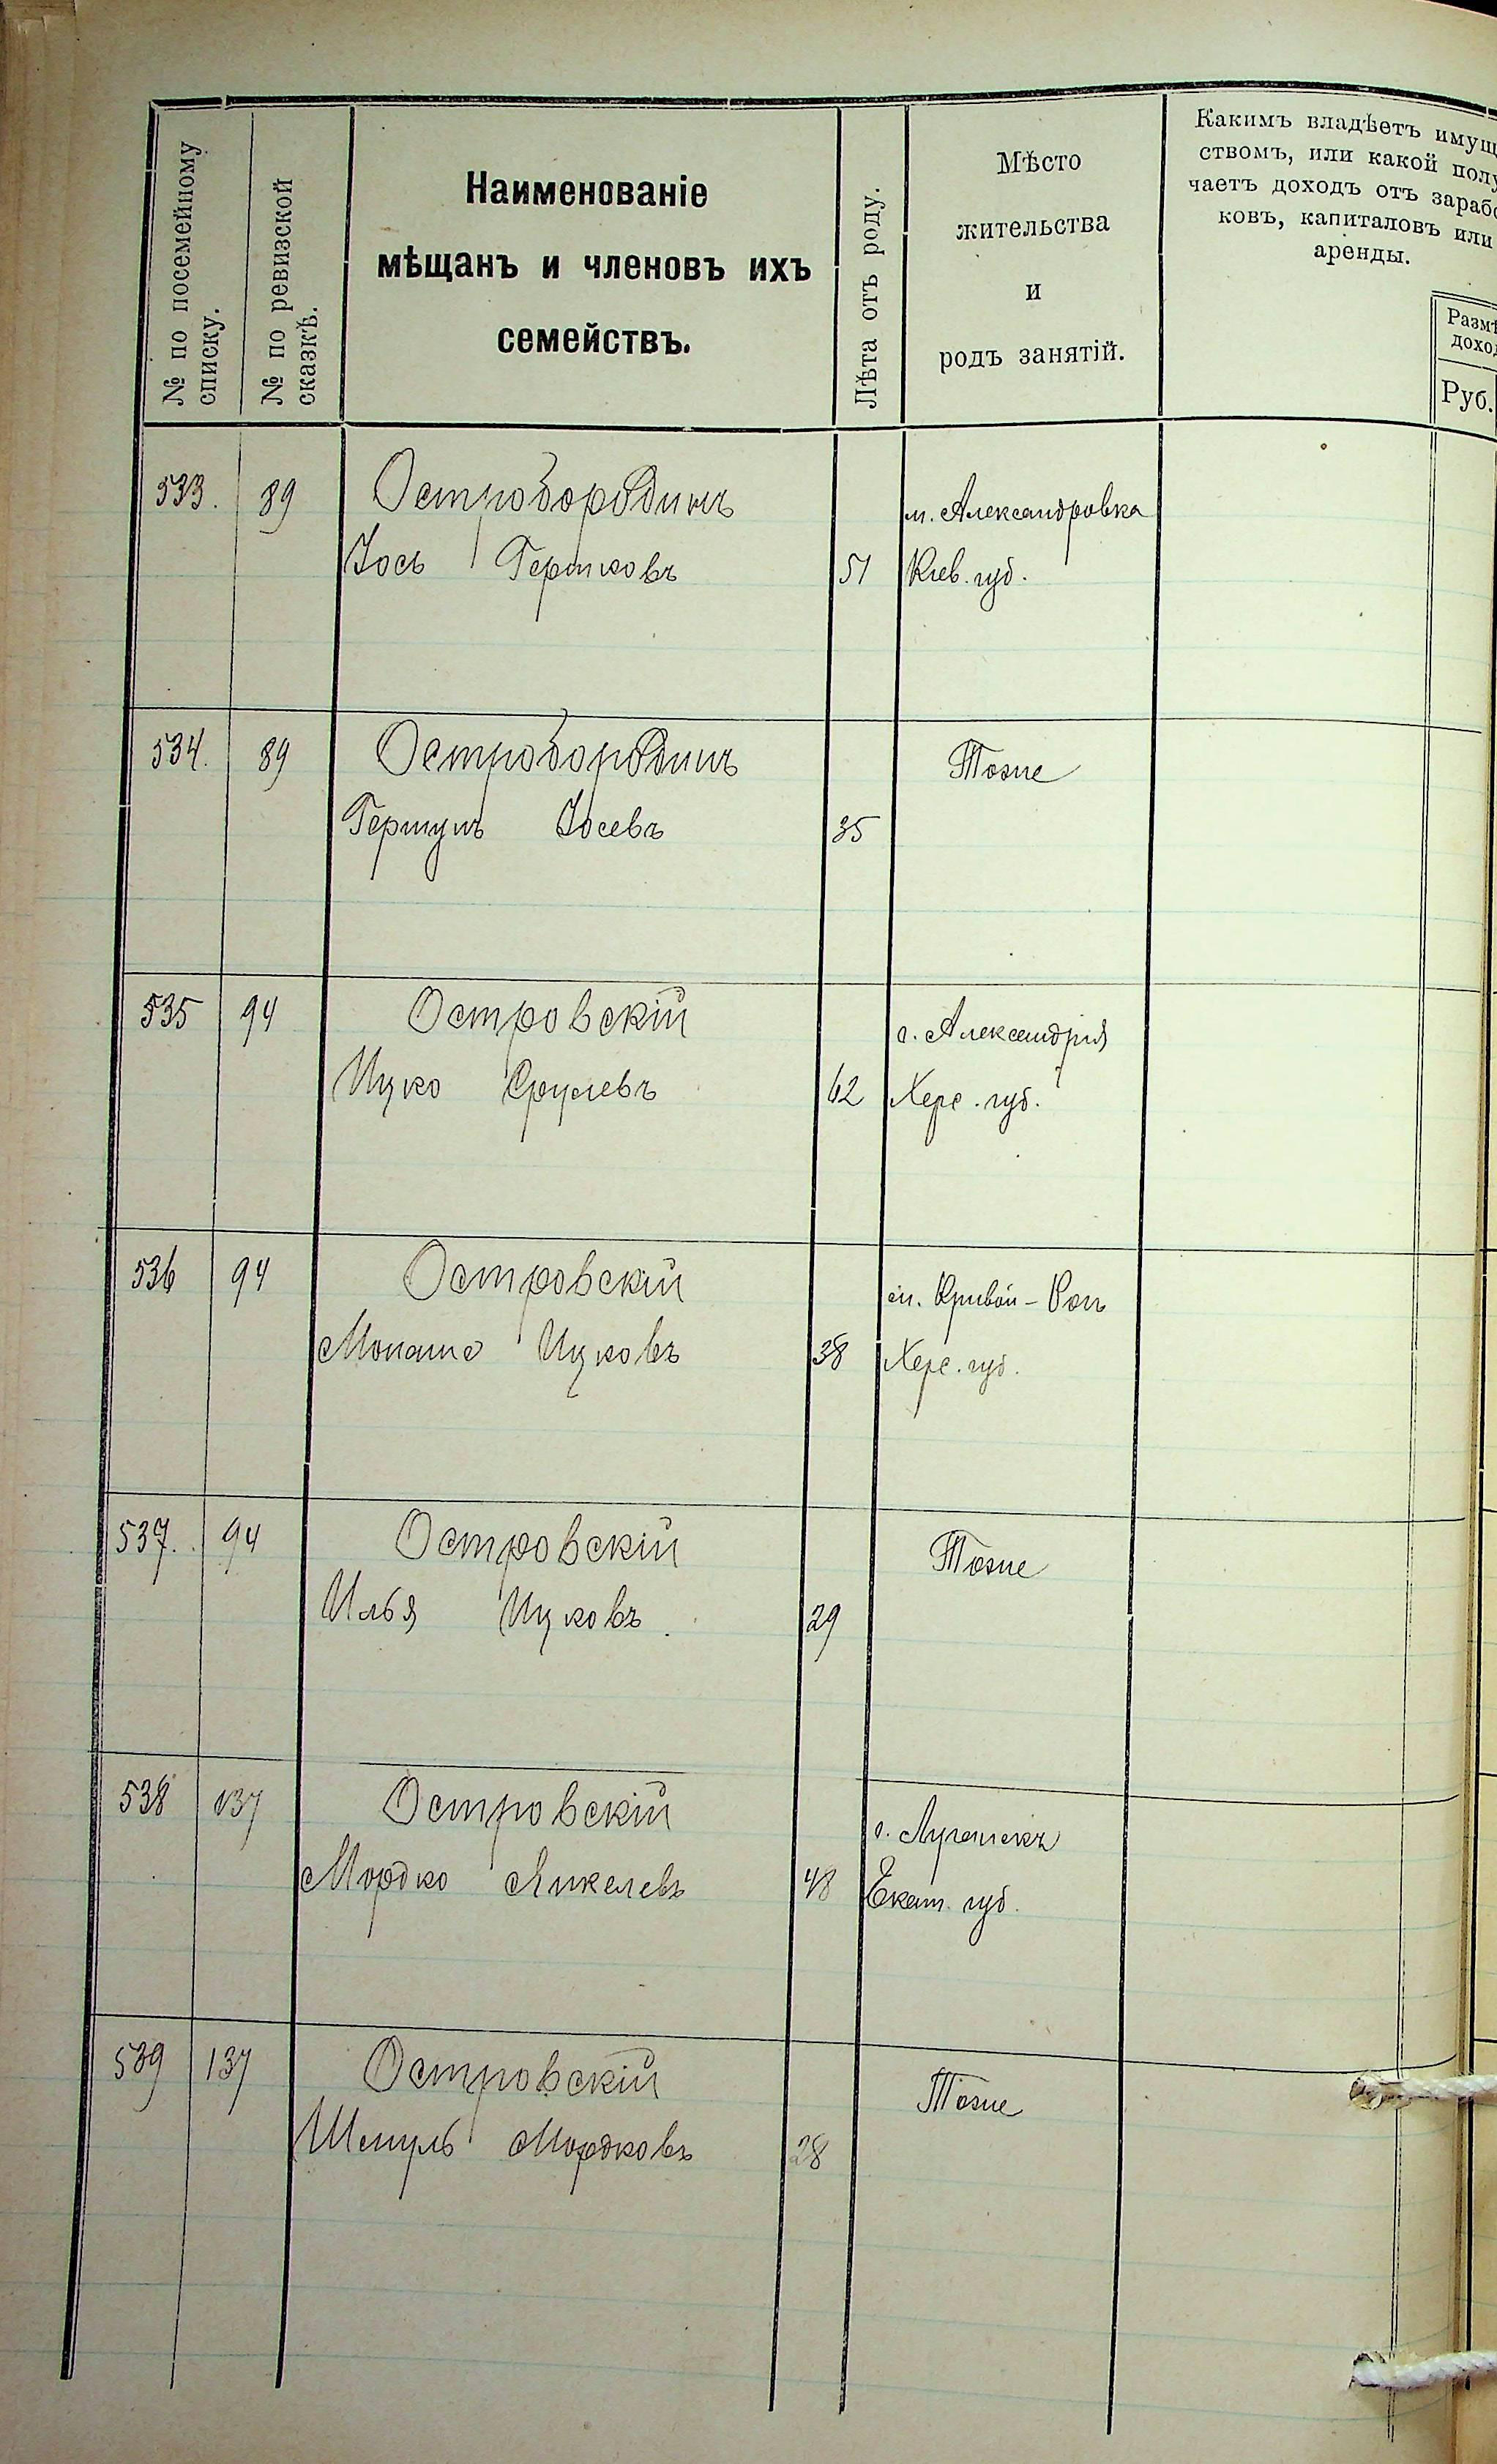 № по посемейному
списку.
№ по ревизской
сказкѣ.
Наименованіе
мѣщанъ и членовъ ихъ
семействъ.
Лѣта отъ роду.
Мѣсто
жительства
и
родъ занятій.
Какимъ владѣетъ имущ
ствомъ, или какой полу
чаетъ доходъ отъ зарабо
ковъ, капиталовъ или
аренды.
Размѣ
доход
Руб.
533. 89 Остробородинъ м. Александровка
Іось Гершковъ 51 Кіев. губ.
534. 89 Остробородинъ Тоже
Гершунъ Іосевъ 35
535 94 Островскій г. Александрія
Ицко Срулевъ 62 Херс. губ.
536 94 Островскій м. Кривой-Рогъ
Монаше Ицковъ 38 Херс. губ.
537. 94 Островскій Тоже
Илья Ицковъ. 29
538 137 Островскій г. Луганскъ
Мордко Янкелевъ 48 Екат. губ.
539 137 Островскій Тоже
Шмуль Мордковъ 28